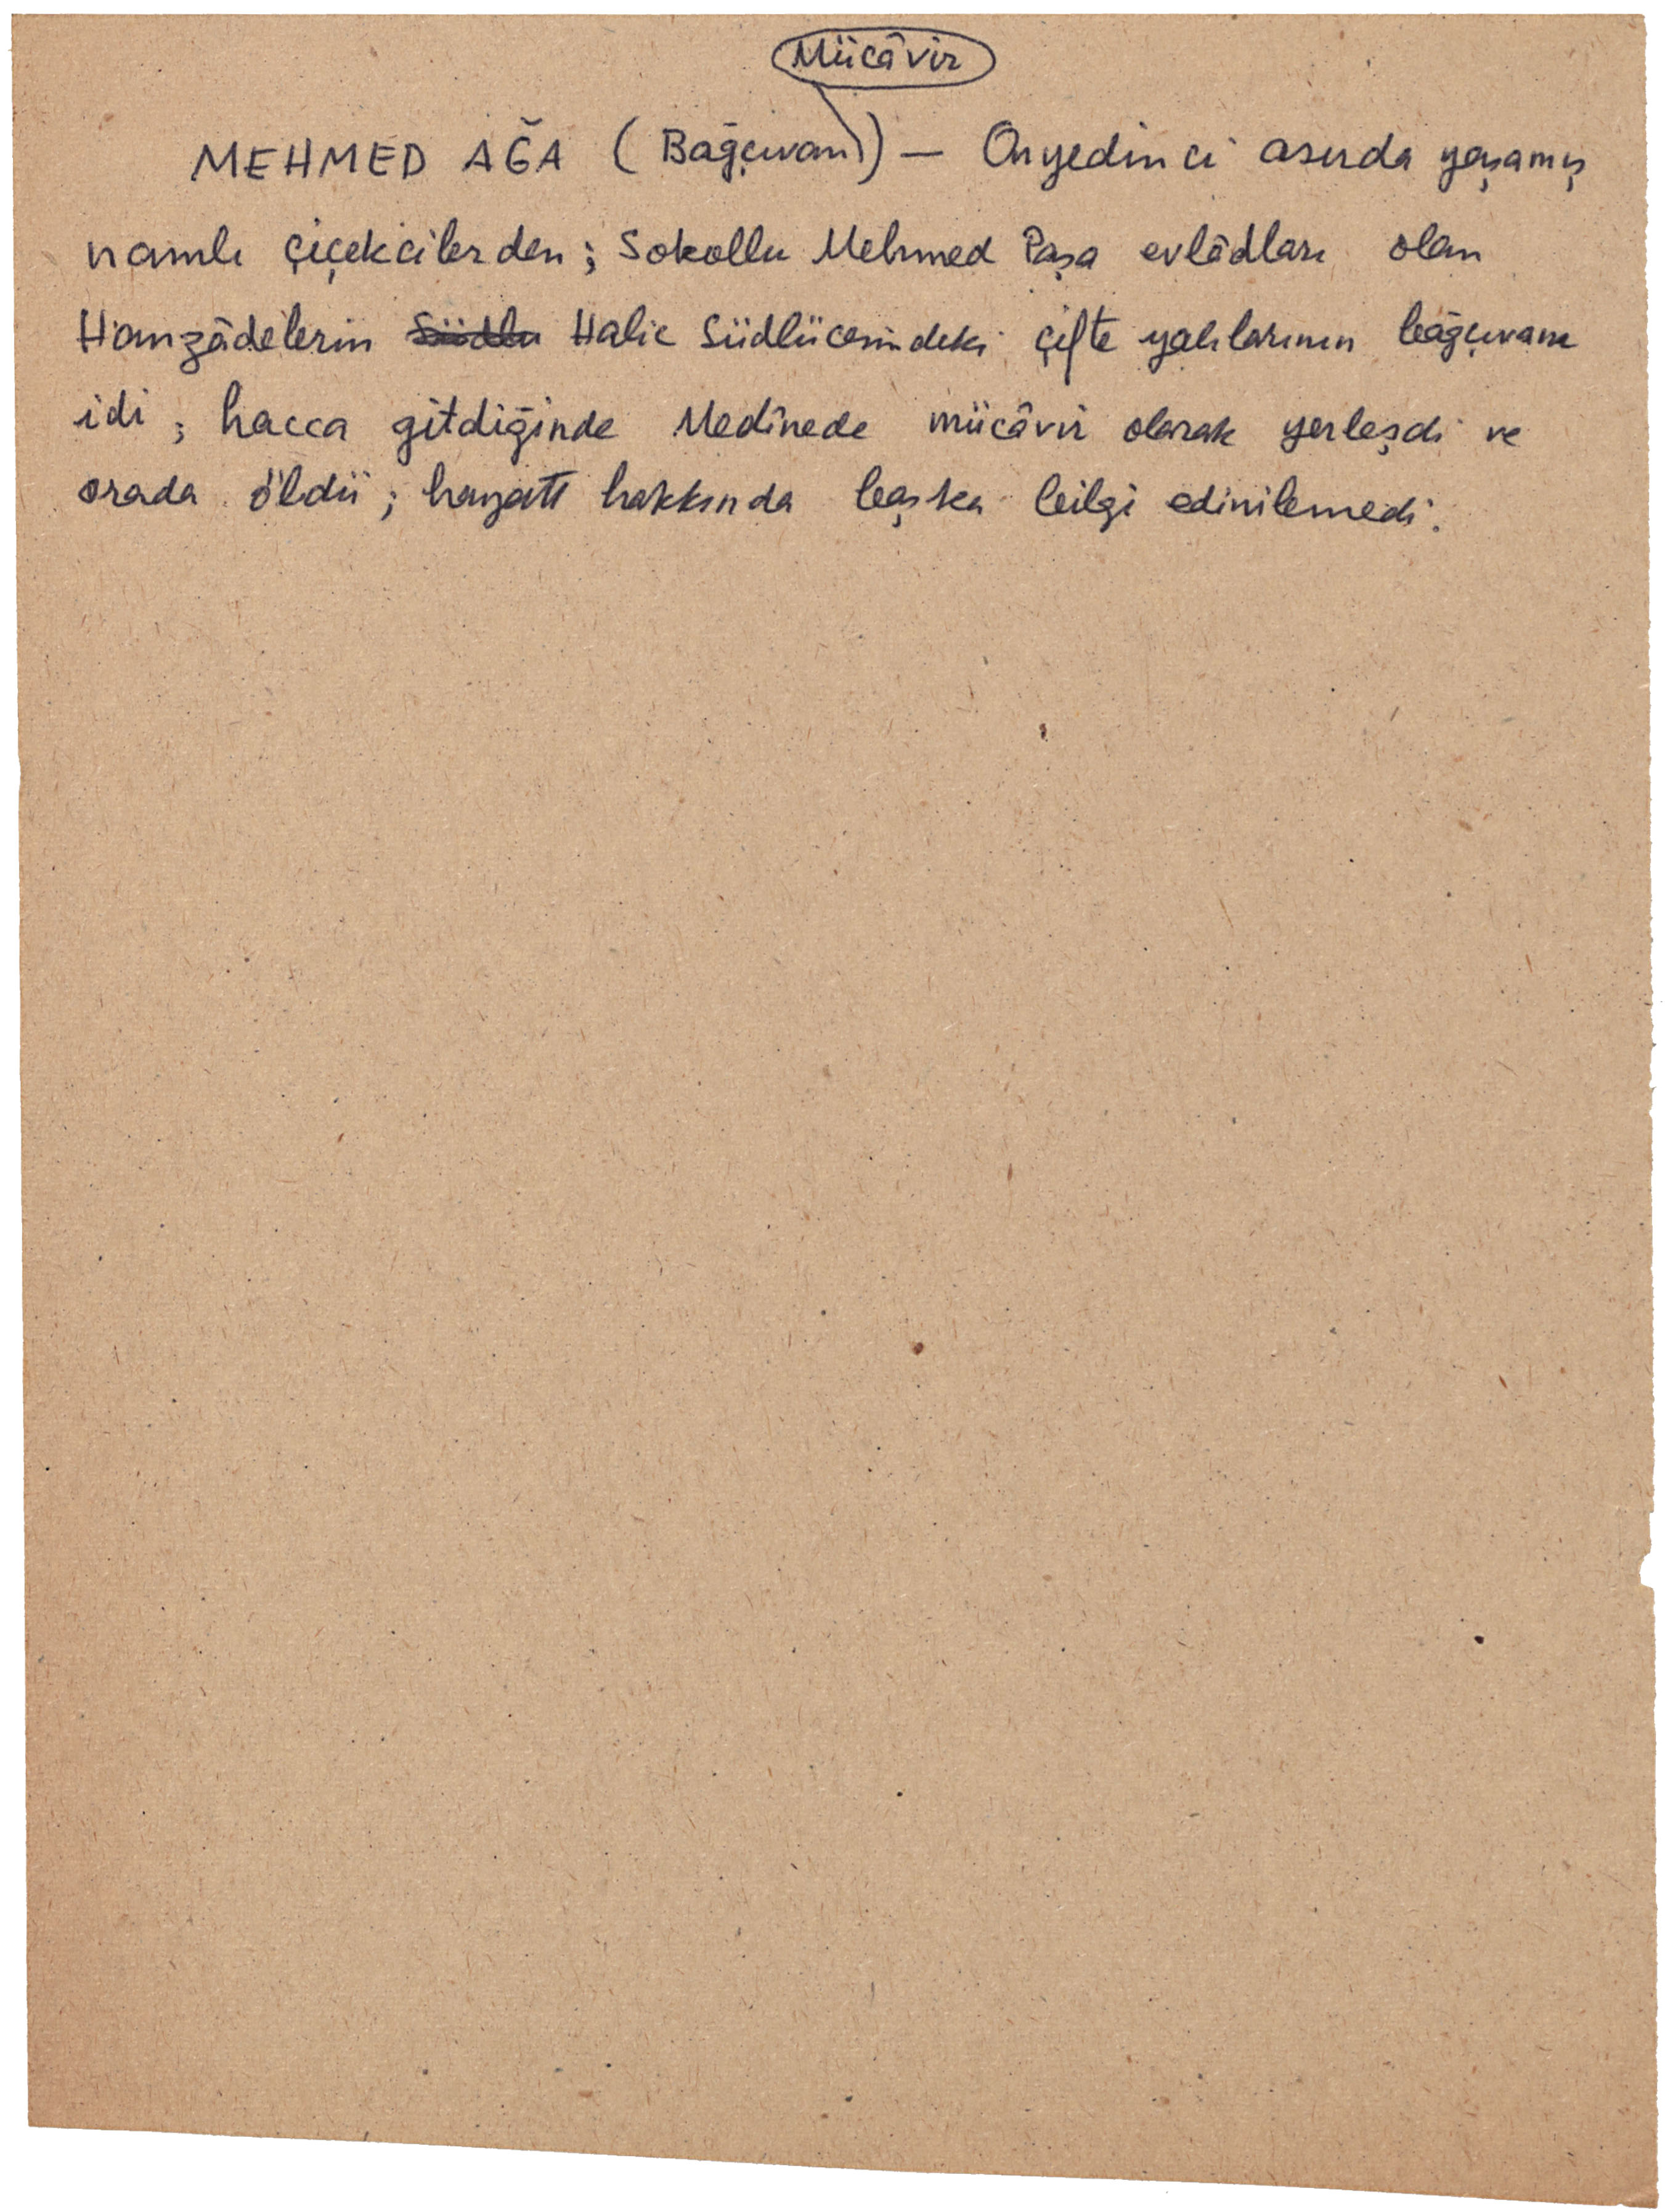 Mücâvir
MEHMED AĞA (Bağçıvan) — Onyedinci asırda yaşamış
namlı çiçekcilerden; Sokollu Mehmed Paşa evlâdları olan
Hanzâdelerin Südlu Halic Südlücesindeki çifte yalılarının bağçıvanı
idi; hacca gitdiğinde Medînede mücâvir olarak yerleşdi ve
orada öldü; hayatı hakkında başka bilgi edinilemedi.